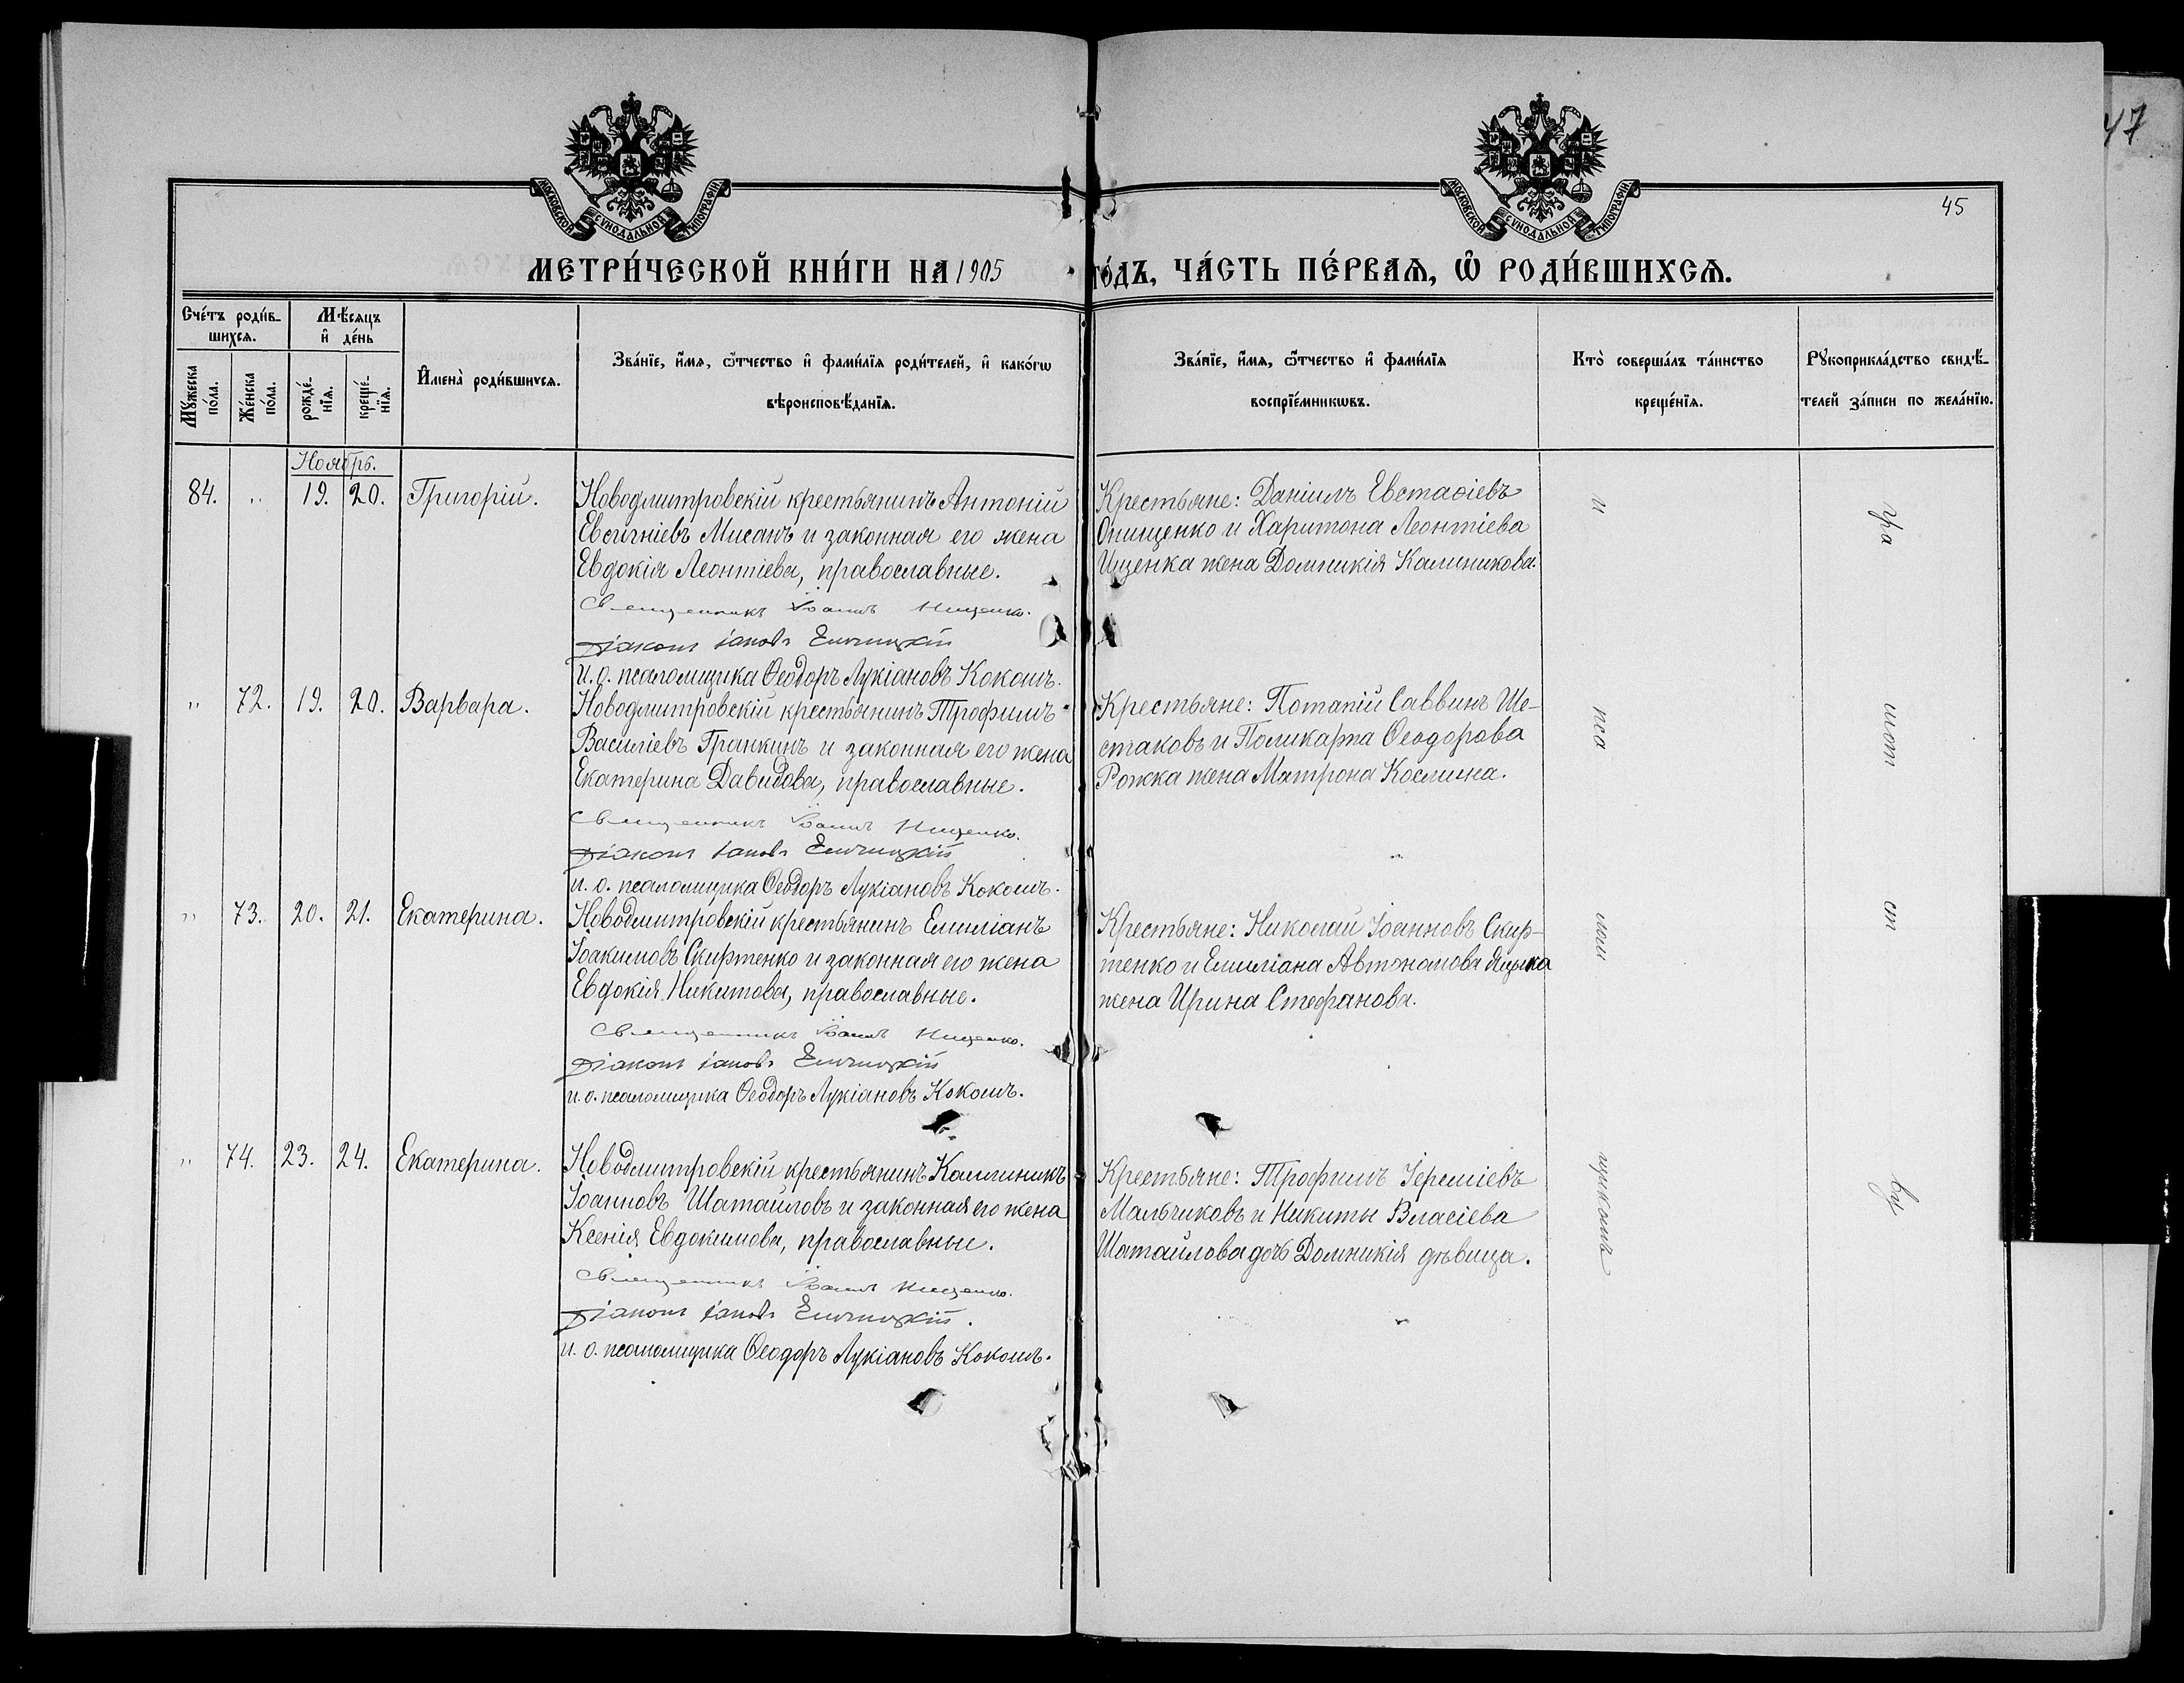 47
МОСКОВСКОЙ СѴНОДАЛЬНОЙ ТИПОГРАФІИ
МОСКОВСКОЙ СѴНОДАЛЬНОЙ ТИПОГРАФІИ
45
МЕТРИ́ЧЕСКОЙ КНИ́ГИ НА 1905 ГО́ДЪ, ЧА́СТЬ ПЕ́РВАѦ, Ѡ҆ РОДИ́ВШИХСѦ.
Сче́тъ роди́в-
шихсѧ.
Мꙋ́жеска по́ла.
Же́нска по́ла.
Мѣ́сѧцъ
и҆ де́нь
рожде́-нїѧ.
креще́-нїѧ.
И҆мена̀ роди́вшихсѧ.
Зва́нїе, и҆́мѧ, ѻ҆́тчество и҆ фами́лїѧ роди́телей, и҆ како́гѡ
вѣроисповѣ́данїѧ.
Зва́нїе, и҆́мѧ, ѻ҆́тчество и҆ фами́лїѧ
воспрїе́мникѡвъ.
Кто̀ соверша́лъ та́инство
креще́нїѧ.
Рꙋкоприкла́дство свидѣ́-
телей за́писи по жела́нїю.
Ноябрь.
84. " 19. 20. Григорій.
Новодмитровскій крестьянинъ Антоній
Евсигніевъ Мисанъ и законная его жена
Евдокія Леонтіева, православные.
Священникъ Іоаннъ Нищенко.
Діаконъ Іаковъ
и. о. псаломщика Ѳеодоръ Лукіановъ Кокошъ.
Крестьяне: Даніилъ Евстаѳіевъ
Онищенко и Харитона Леонтіева
Ищенка жена Домникія Калиникова.
" 72. 19. 20. Варвара.
Новодмитровскій крестьянинъ Трофимъ
Василіевъ Гранкинъ и законная его жена
Екатерина Давидова, православные.
Священникъ Іоаннъ Нищенко.
Діаконъ Іаковъ
и. о. псаломщика Ѳеодоръ Лукіановъ Кокошъ.
Крестьяне: Потапій Саввинъ Ше-
стаковъ и Поликарпа Ѳеодорова
Рожка жена Матрона Космина.
" 73. 20. 21. Екатерина.
Новодмитровскій крестьянинъ Емиліанъ
Іоакимовъ Скиртенко и законная его жена
Евдокія Никитова, православные.
Священникъ Іоаннъ Нищенко.
Діаконъ Іаковъ
и. о. псаломщика Ѳеодоръ Лукіановъ Кокошъ.
Крестьяне: Николай Іоанновъ Скир-
тенко и Емиліана Автономова Яцыка
жена Ирина Стефанова.
" 74. 23. 24. Екатерина.
Новодмитровскій крестьянинъ Каллиникъ
Іоанновъ Шатайловъ и законная его жена
Ксенія Евдокимова, православные.
Священникъ Іоаннъ Нищенко.
Діаконъ Іаковъ
и. о. псаломщика Ѳеодоръ Лукіановъ Кокошъ.
Крестьяне: Трофимъ Іереміевъ
Мальчиковъ и Никиты Власіева
Шатайлова дочь Домникія дѣвица.